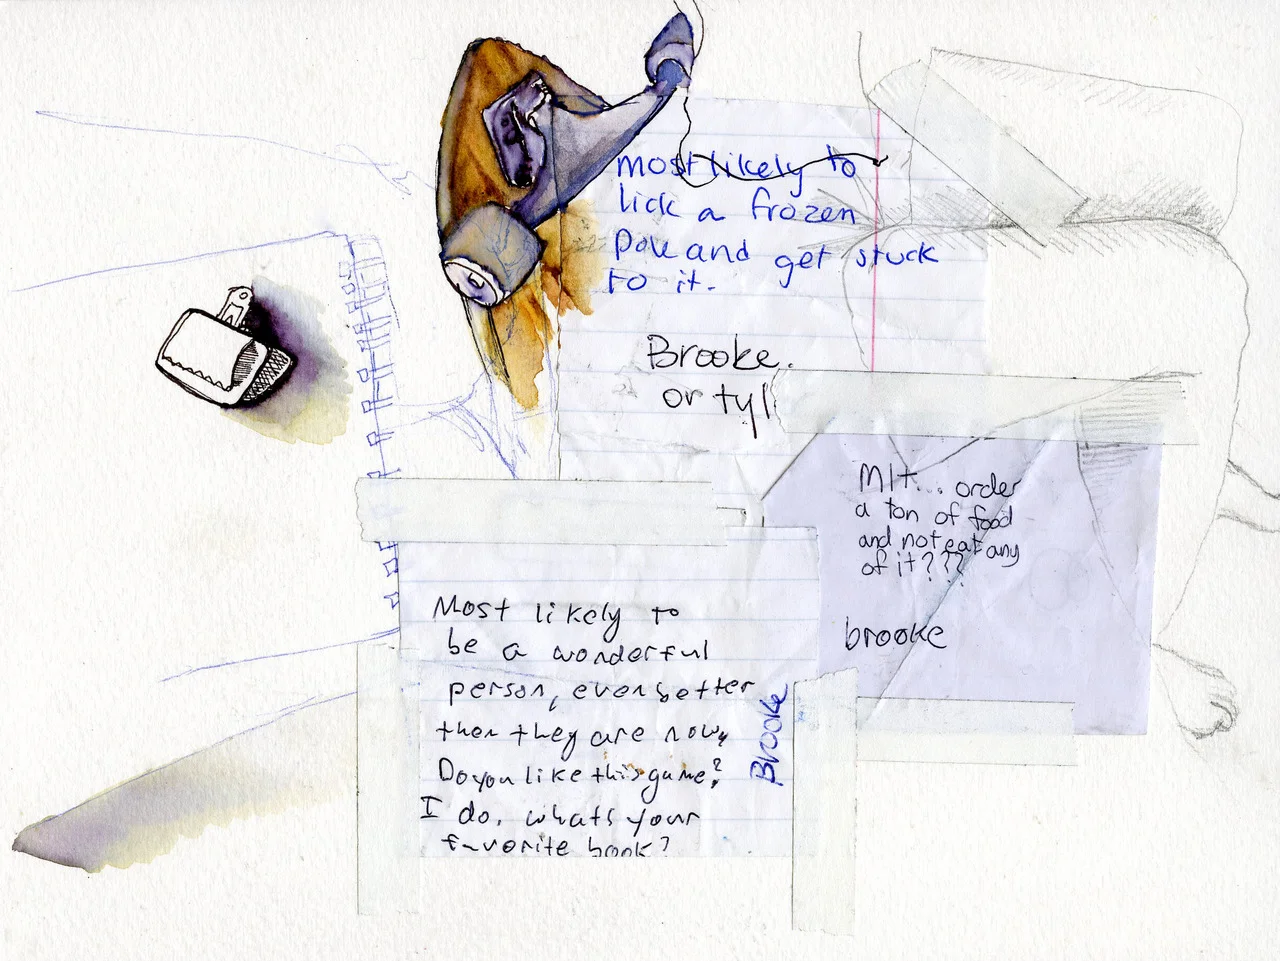 most likely to
lick a frozen
Pole and get stuck
to it.
Brooke.
or tyl
Mlt... order
a ton of food
and not eat any
of it???
brooke
Most likely to
be a wonderful
person, even better
then they are now,
Do you like this game?
I do, whats your
favorite book?
Brooke